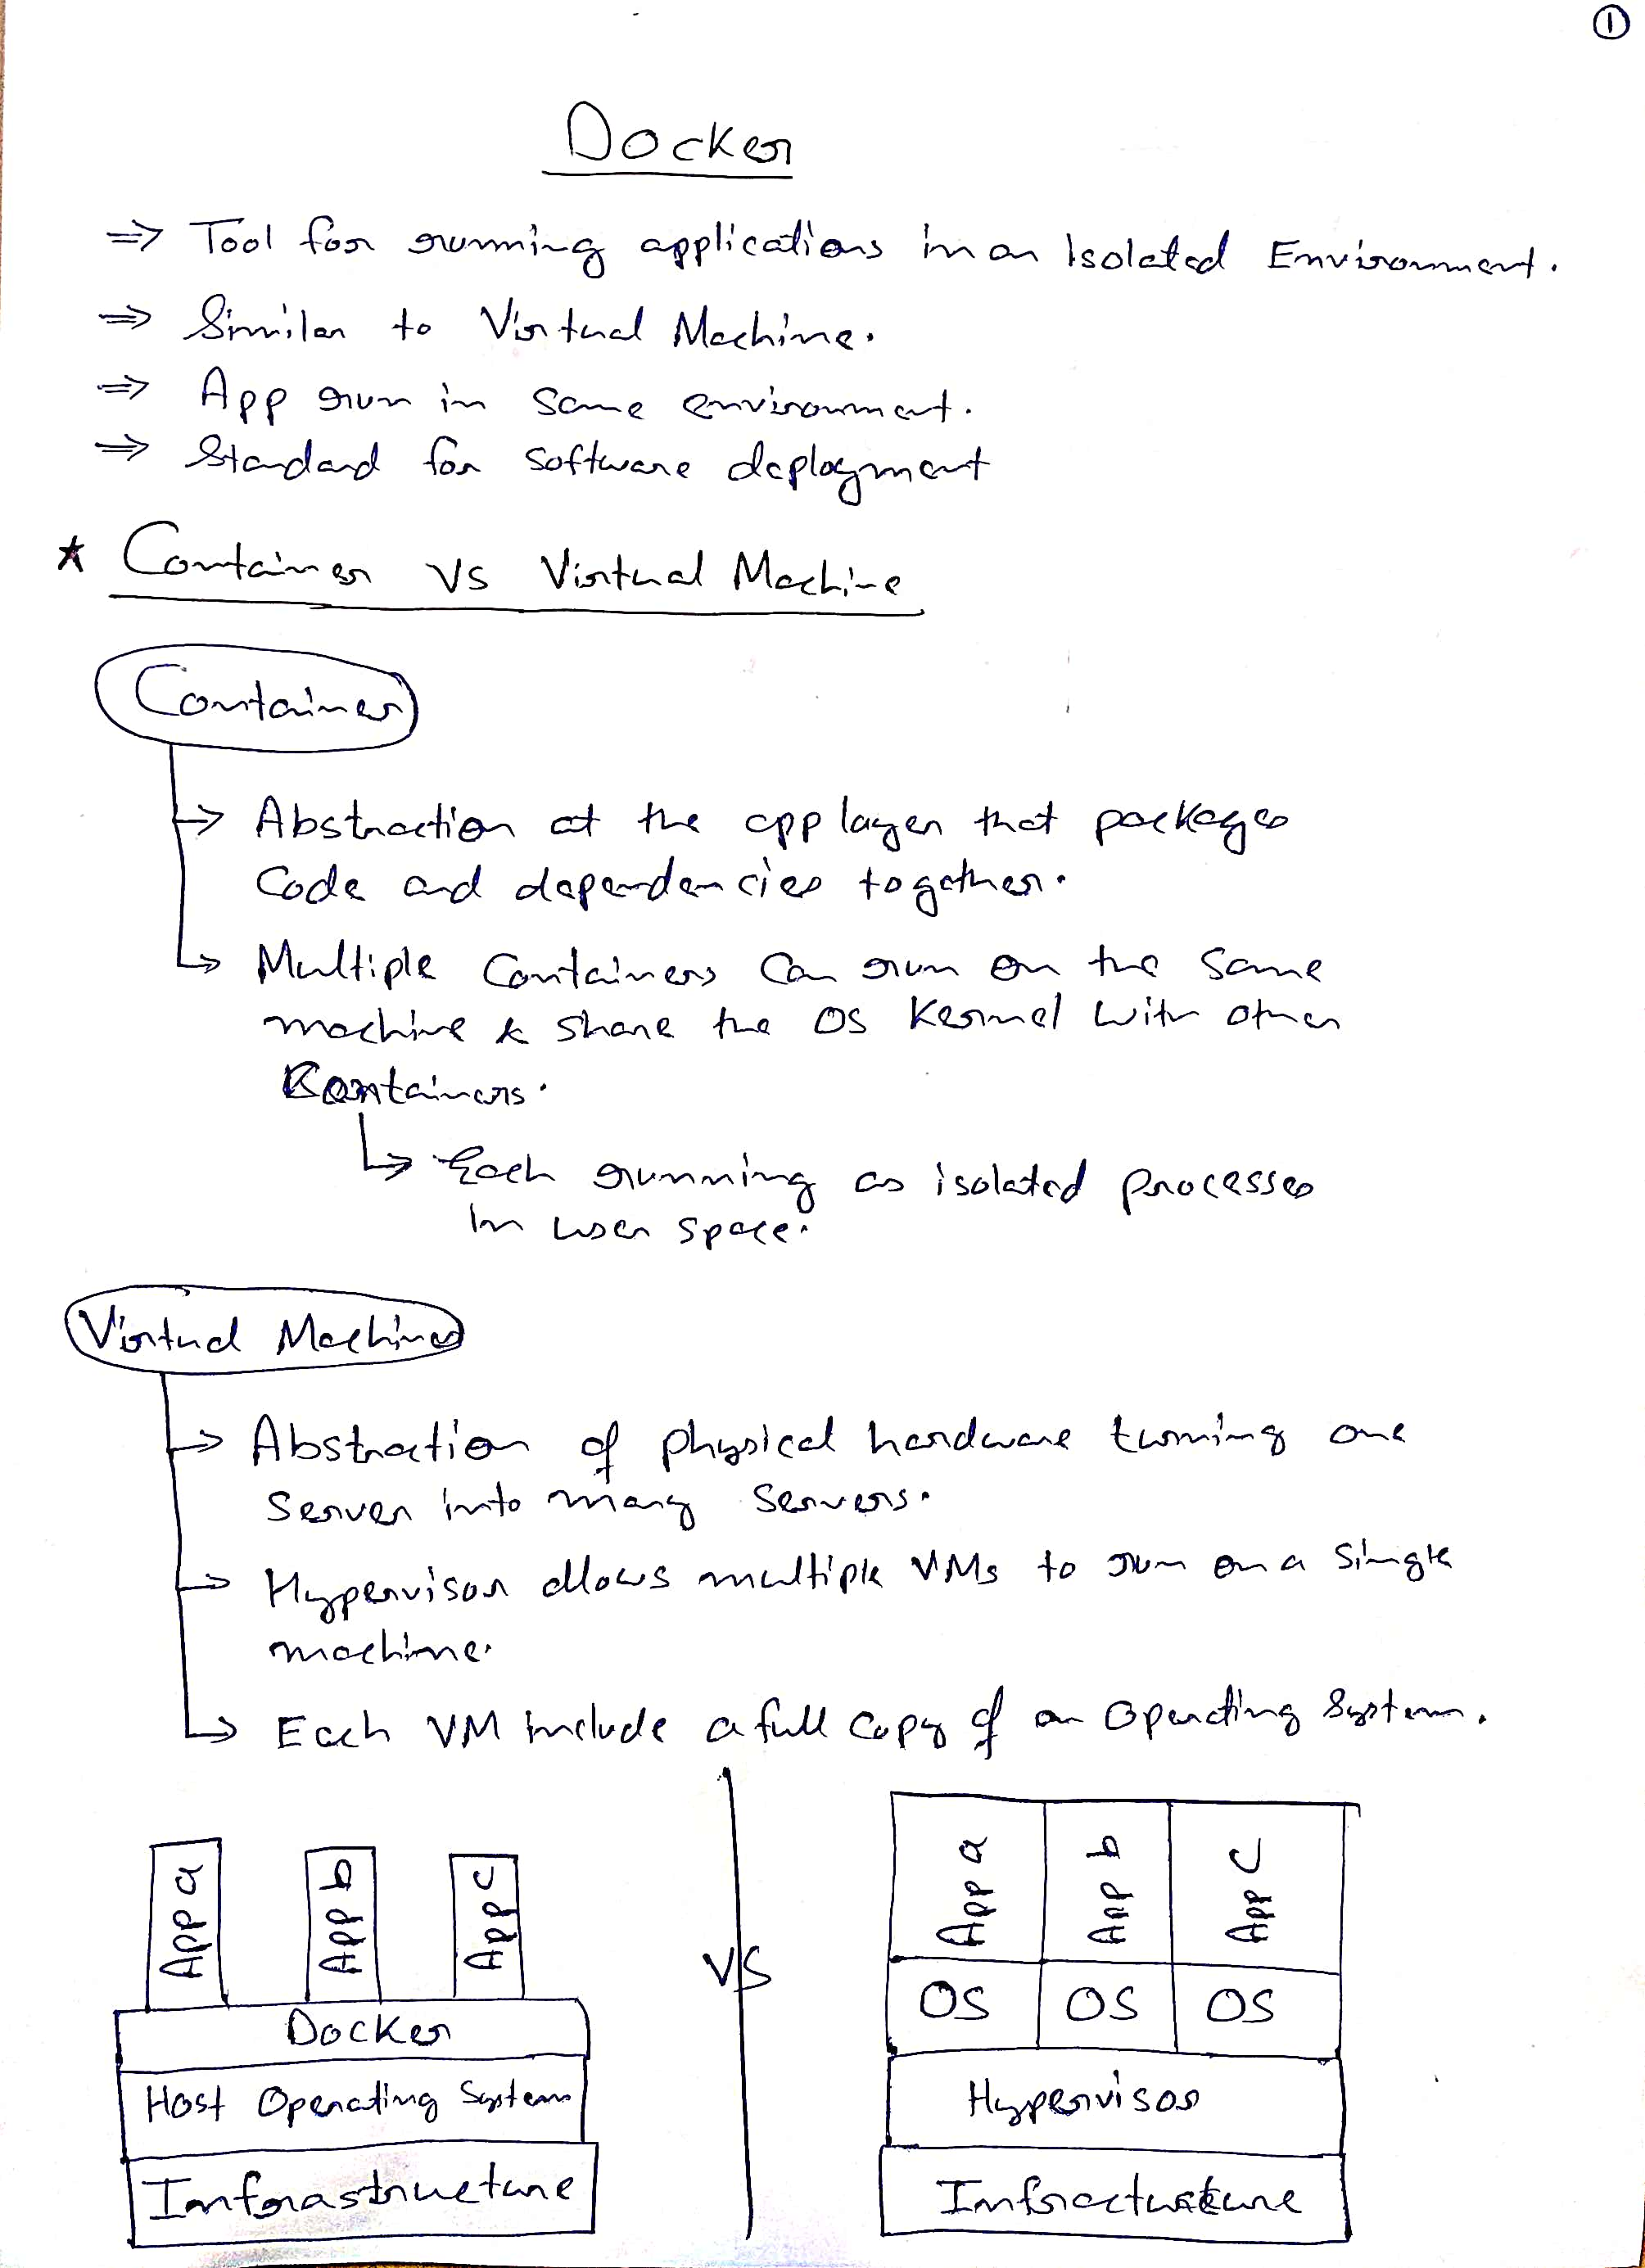 ①
Docker
⇒ Tool for running applications in an Isolated Environment.
⇒ Similar to Virtual Machine.
⇒ App run in same environment.
⇒ Standard for software deployment
* Container VS Virtual Machine
Container
→ Abstraction at the app layer that packages
Code and dependencies together.
↳ Multiple Containers Can run on the same
machine & share the OS Kernel with other
Containers.
↳ Each running as isolated processes
In user space.
Virtual Machines
→ Abstraction of physical hardware turning one
server into many servers.
→ Hypervisor allows multiple VMs to run on a single
machine.
↳ Each VM include a full copy of an Operating System.
App a App b App c
Docker
Host Operating System
Infrastructure
VS
App a App b App C
OS OS OS
Hypervisor
Infractucture